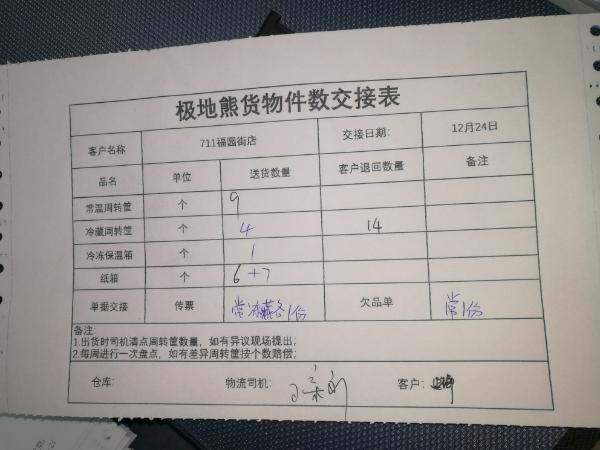 极地熊货物件数交接表
客户名称 711福园街店 交接日期: 12月24日
品名 单位 送货数量 客户退回数量 备注
常温周转筐 个 9
冷藏周转筐 个 4 14
冷冻保温箱 个 1
纸箱 个 6+7
单据交接 传票 常冷藏各1份 欠品单 常1份
备注:
1.出货时司机清点周转筐数量，如有异议现场提出；
2.每周进行一次盘点，如有差异周转筐按个数赔偿；
仓库: 物流司机: 客户: